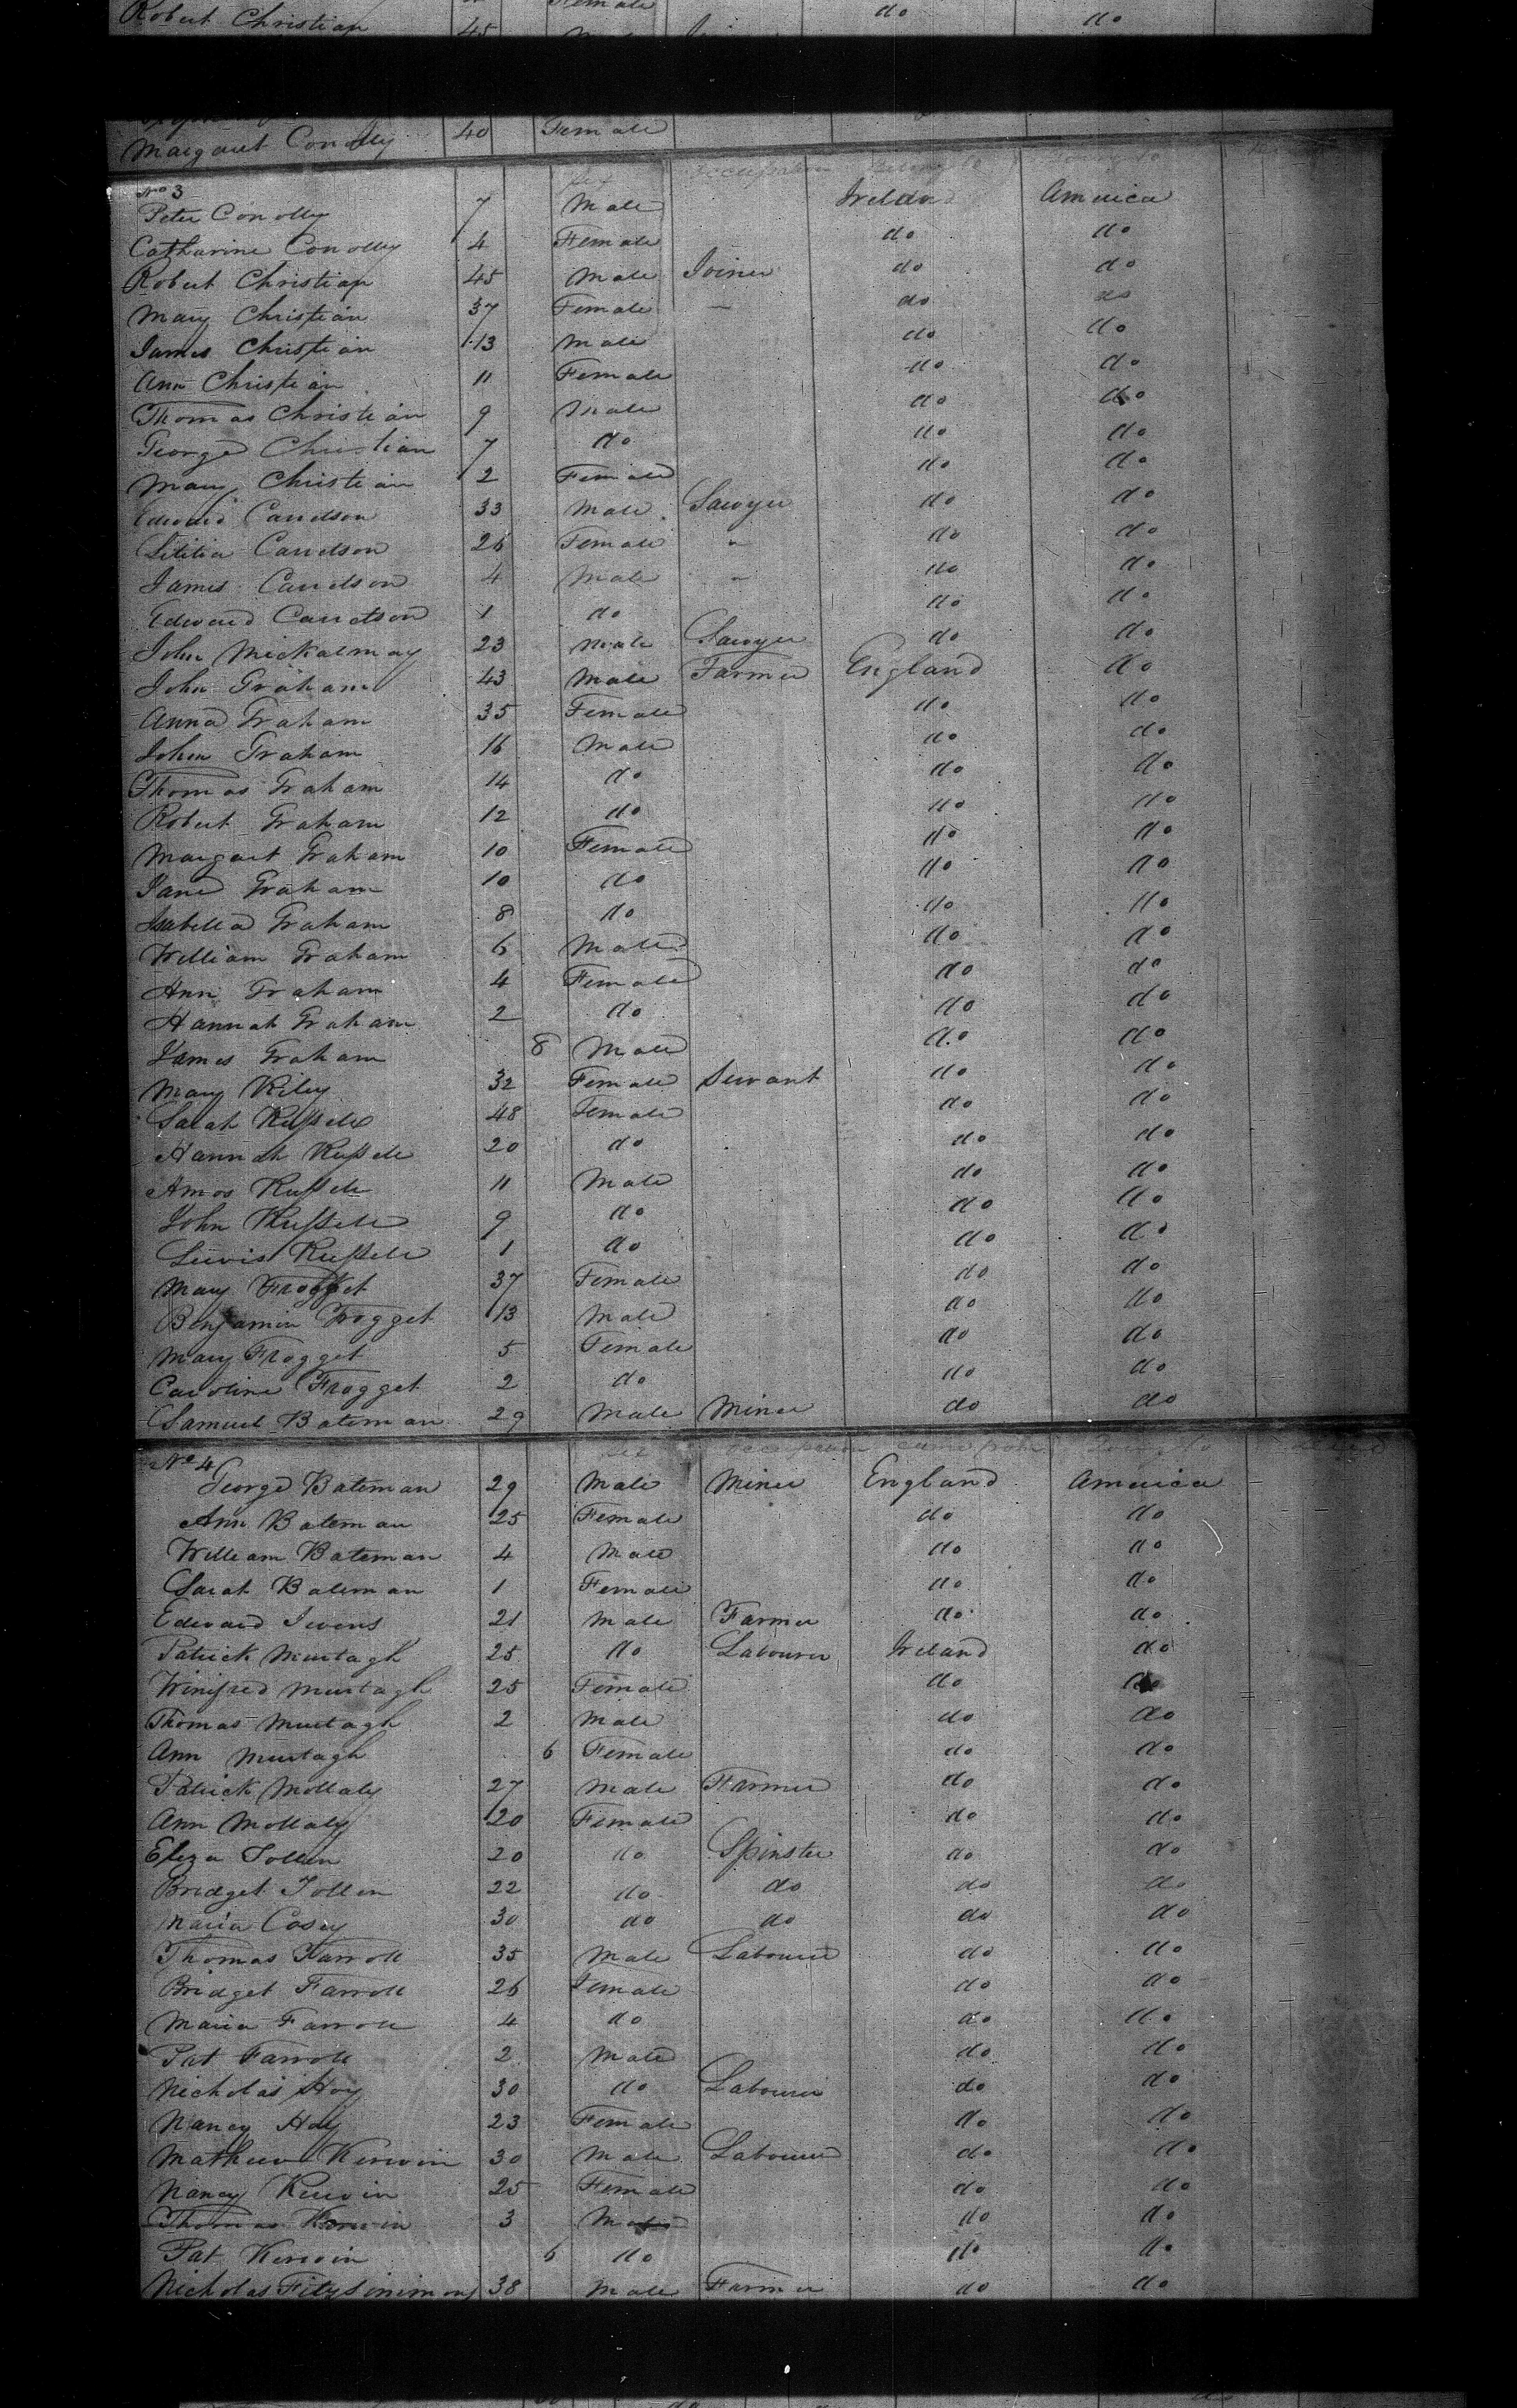 Robert Christian 45 do do
Margaret Conolly 40 Female
No 3
Peter Conolly 7 Male America
Catharine Conolly 4 Female do do
Robert Christian 45 Male Joiner do do
Mary Christian 37 Female – do do
James Christian 13 Male do do
Ann Christian 11 Female do do
Thomas Christian 9 Male do do
George Christian 7 do do do
Mary Christian 2 Female do do
Edward 33 Male Sawyer do do
Letitia 26 Female " do do
James 4 Male " do do
Edward 1 do do do
John Mickalmay 23 Male Sawyer do do
John Graham 43 Male Farmer England do
Anna Graham 35 Female do do
John Graham 16 Male do do
Thomas Graham 14 do do do
Robert Graham 12 do do do
Margaret Graham 10 Female do do
Jane Graham 10 do do do
Isabella Graham 8 do do do
William Graham 6 Male do do
Ann Graham 4 Female do do
Hannah Graham 2 do do do
James Graham 8 Male do do
Mary Riley 32 Female Servant do do
Sarah Russell 48 Female do do
Hannah Russell 20 do do do
Amos Russell 11 Male do do
John Russell 9 do do do
Lewis Russell 1 do do do
Mary Frogget 37 Female do do
Benjamin Frogget 13 Male do do
Mary Frogget 5 Female do do
Caroline Frogget 2 do do do
Samuel Bateman 29 Male Miner do do
No 4
George Bateman 29 Male Miner England America
Ann Bateman 25 Female do do
William Bateman 4 Male do do
Sarah Bateman 1 Female do do
Edward Ivens 21 Male Farmer do do
Patrick Murtagh 25 do Labourer Ireland do
Winifred Murtagh 25 Female do do
Thomas Murtagh 2 Male do do
Ann Murtagh 6 Female do do
Patrick Mollaly 27 Male Farmer do do
Ann Mollaly 20 Female do do
Eliza 20 do Spinster do do
Bridget 22 do do do do
Maria Casey 30 do do do do
Thomas Farroll 35 Male Labourer do do
Bridget Farroll 26 Female do do
Maria Farroll 4 do do do
Pat Farroll 2 Male do do
Nicholas Hoy 30 do Labourer do do
Nancy Hoy 23 Female do do
Mathew Kerwin 30 Male Labourer do do
Nancy Kerwin 25 Female do do
Thomas Kerwin 3 Male do do
Pat Kerwin 6 do do do
Nicholas Fitzsimimons 38 Male Farmer do do